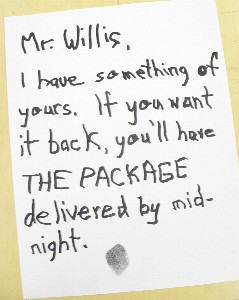 Mr. Willis,
I have something of
yours. If you want
it back, you'll have
THE PACKAGE
delivered by mid-
night.